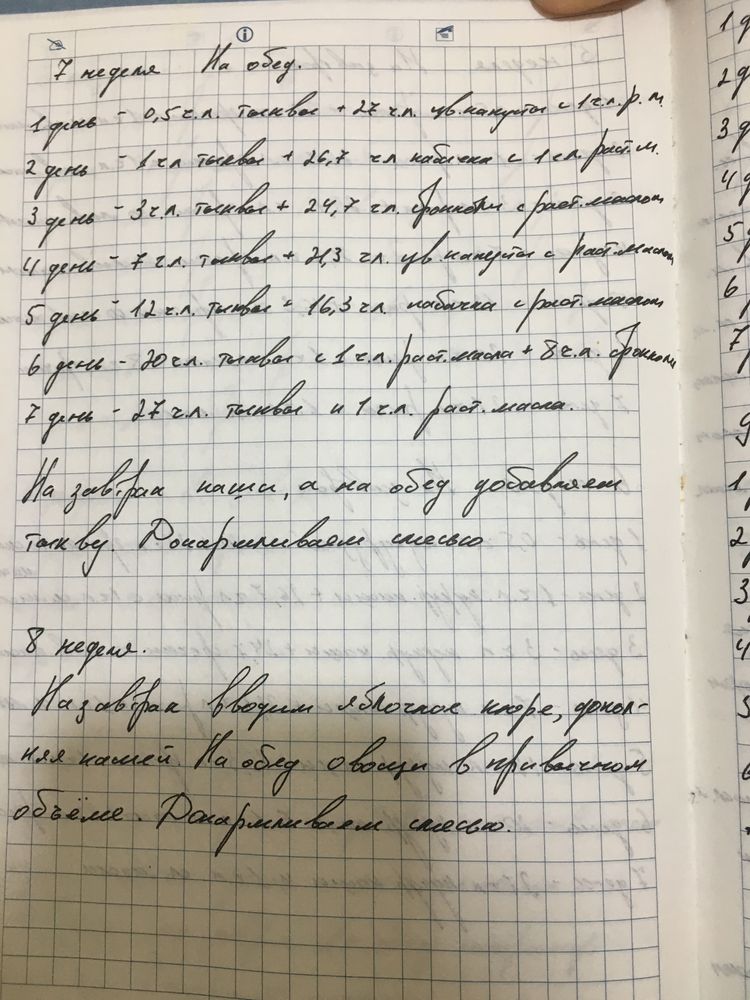 7 неделя На обед.
1 день - 0,5 ч.л. тыквы + 27 ч.л. цв.капусты с 1 ч.л. р.м.
2 день - 1 чл тыквы + 26,7 чл кабачка с 1 чл. раст.м.
3 день - 3 ч.л. тыквы + 24,7 ч.л. брокколи с раст. маслом
4 день - 7 ч.л. тыквы + 21,3 ч.л. цв.капусты с раст.маслом
5 день - 12 ч.л. тыквы - 16,3 ч.л. кабачка с раст.маслом
6 день - 20 ч.л. тыквы с 1 ч.л. раст.масла + 8 ч.л. брокколи
7 день - 27 ч.л. тыквы и 1 ч.л. раст.масла.
На завтрак каши, а на обед добавляем
тыкву. Докармливаем смесью
8 неделя.
На завтрак вводим яблочное пюре, допол-
няя кашей. На обед овощи в привычном
объёме. Докармливаем смесью.
1 д
2 д
3 д
4 д
5 д
6
7
1
2
3
4
5
6